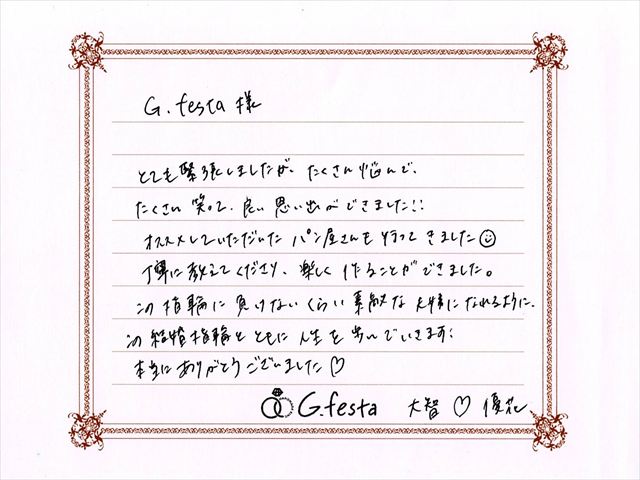 G.festa 様
とても緊張しましたが、たくさん悩んで、
たくさん笑って、良い思い出ができました!!
オススメしていただいたパン屋さんも行ってきました☺
丁寧に教えてくださり、楽しく作ることができました。
この指輪に負けないくらい素敵な夫婦になれるように、
この結婚指輪とともに人生を歩んでいきます!
本当にありがとうございました♡
G.festa 大智♡優花